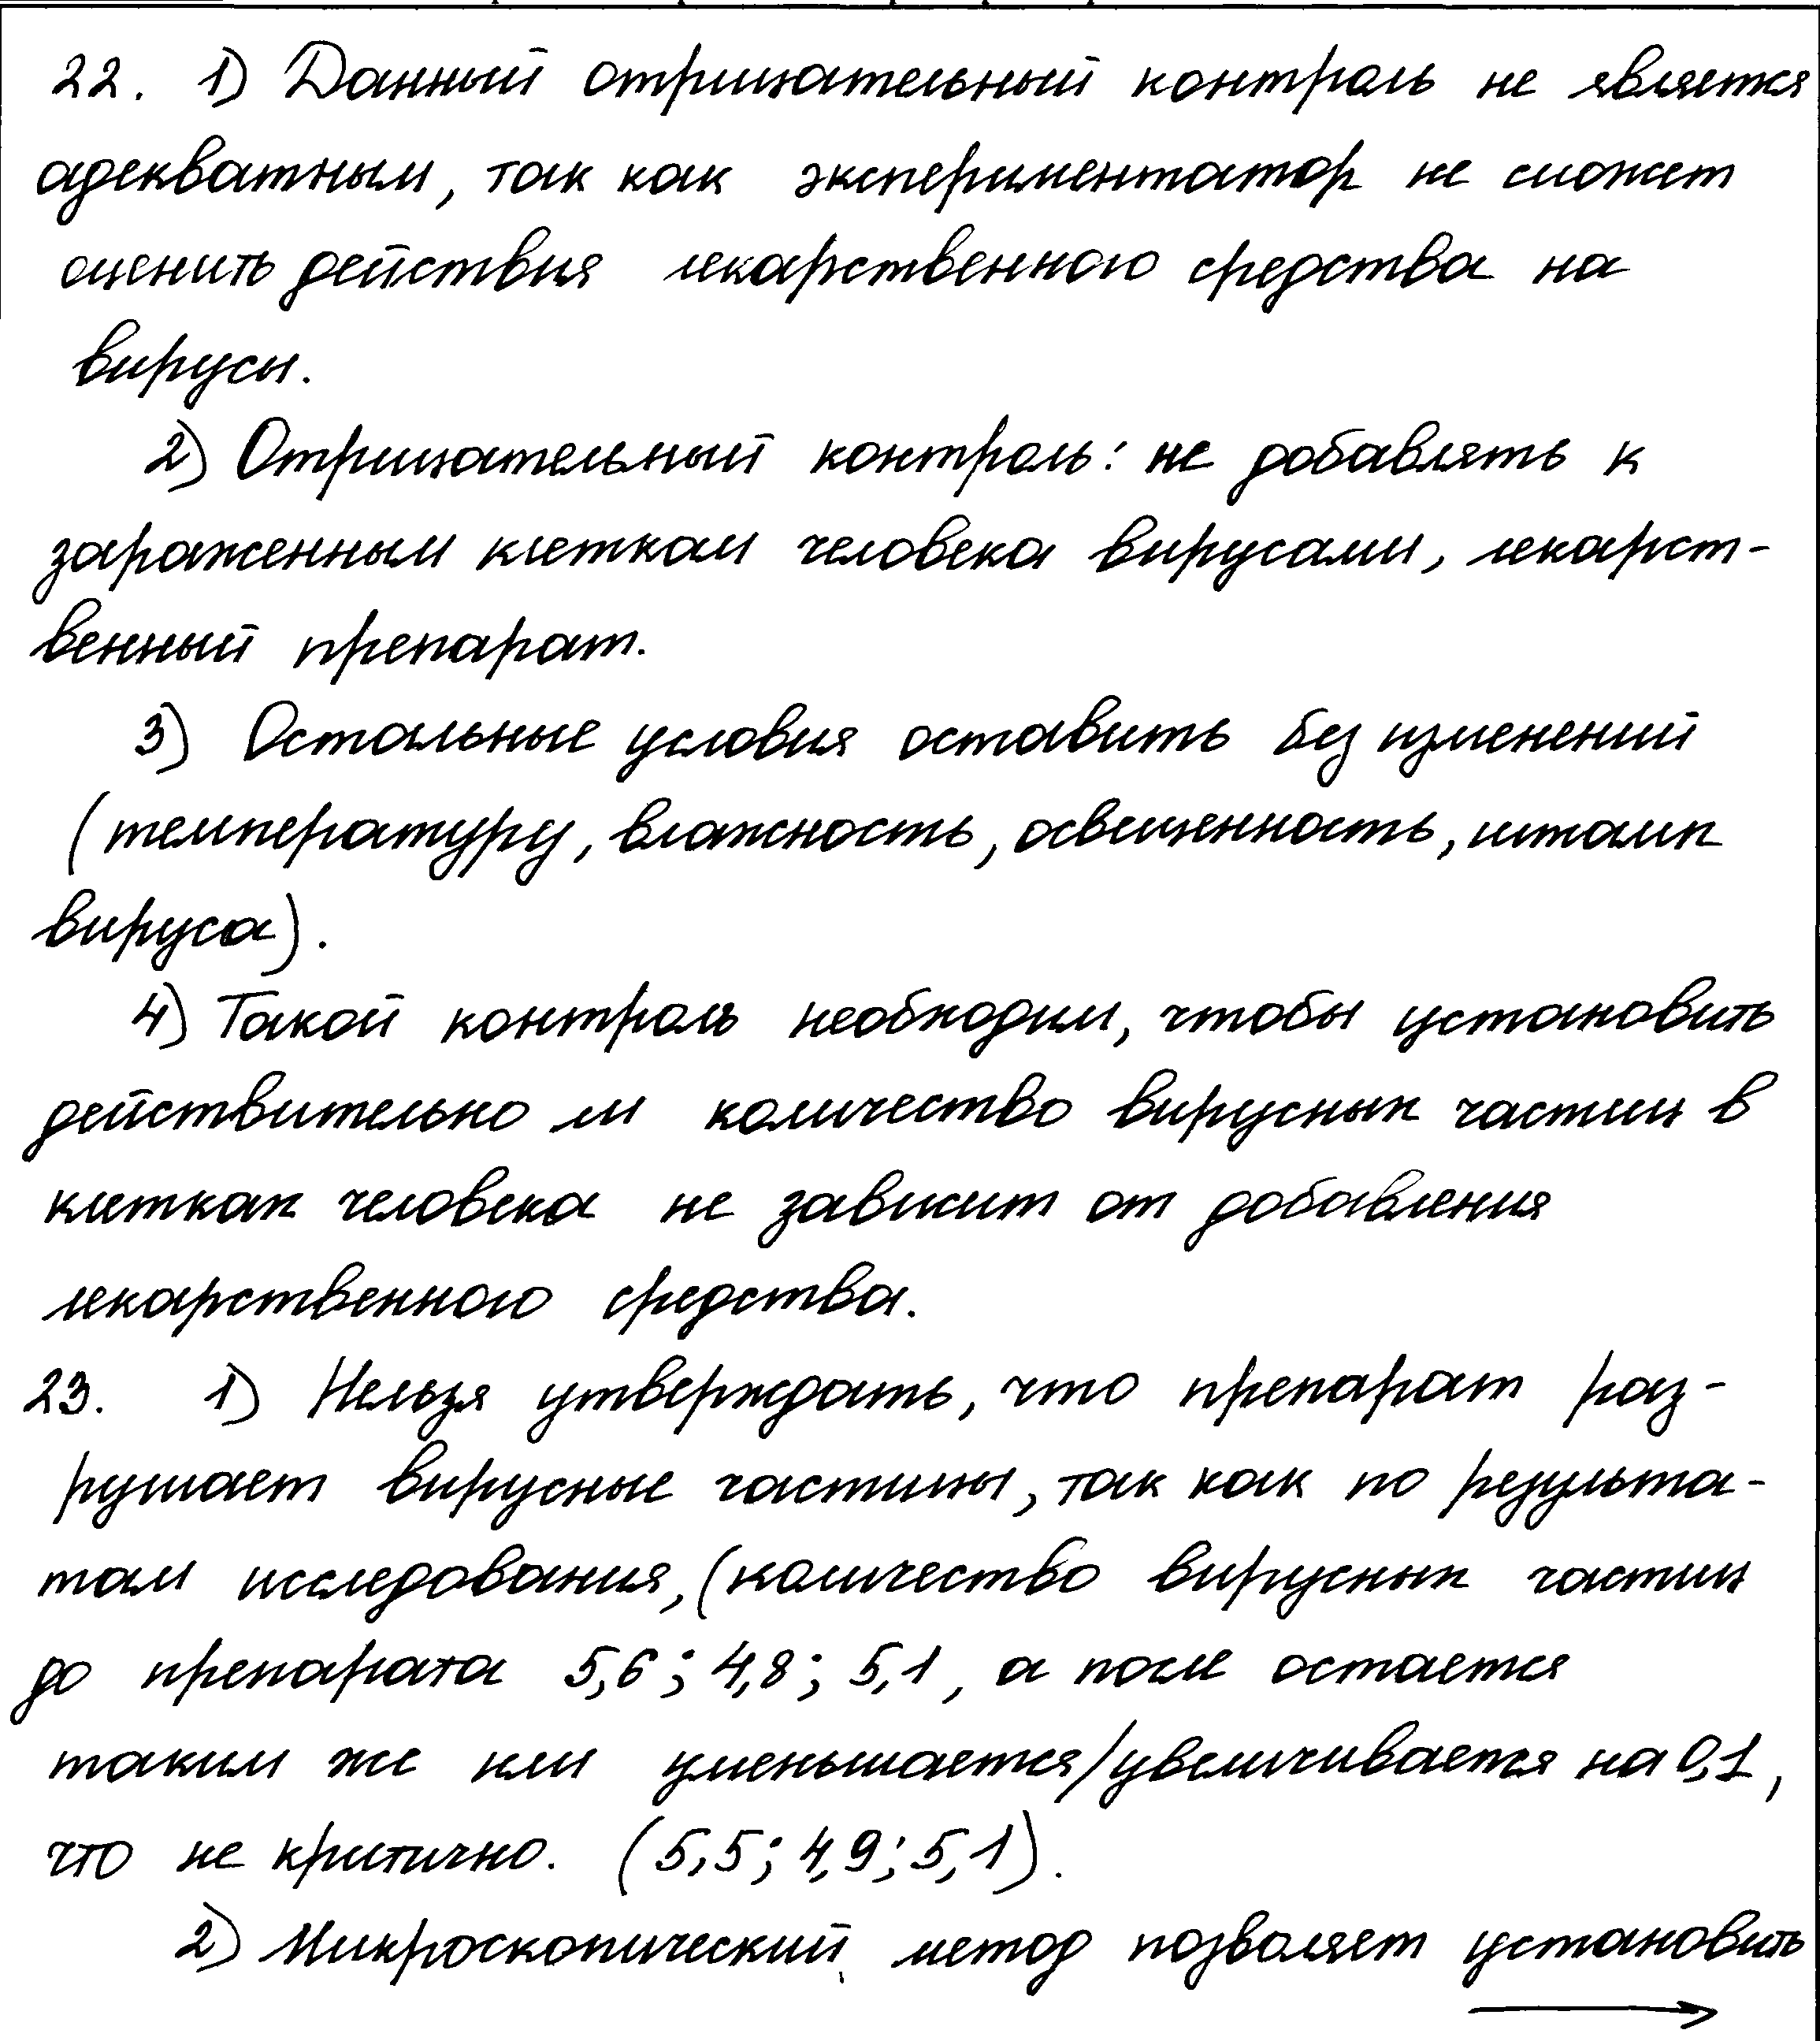 22. 1) Данный отрицательный контроль не является
адекватным, так как экспериментатор не сможет
оценить действия лекарственного средства на
вирусы.
2) Отрицательный контроль: не добавлять к
зараженным клеткам человека вирусами, лекарст-
венный препарат.
3) Остальные условия оставить без изменений
(температуру, влажность, освещенность, штамп
вируса).
4) Такой контроль необходим, чтобы установить
действительно ли количество вирусных частиц в
клетках человека не зависит от добавления
лекарственного средства.
23. 1) Нельзя утверждать, что препарат раз-
рушает вирусные частицы, так как по результа-
там исследования, (количество вирусных частиц
до препарата 5,6; 4,8; 5,1, а после остается
таким же или уменьшается/увеличивается на 0,1,
что не критично. (5,5; 4,9; 5,1).
2) Микроскопический метод позволяет установить